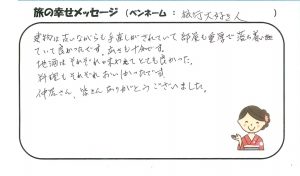 旅の幸せメッセージ (ペンネーム : 大好き人 )
建物は古いながらも手直しがされていて 部屋も重厚で落ち着い
ていて良かったです。広さも十分です。
地酒はそれぞれの味わえてとても良かった。
料理もそれぞれおいしかったです。
仲居さん、皆さんありがとうございました。